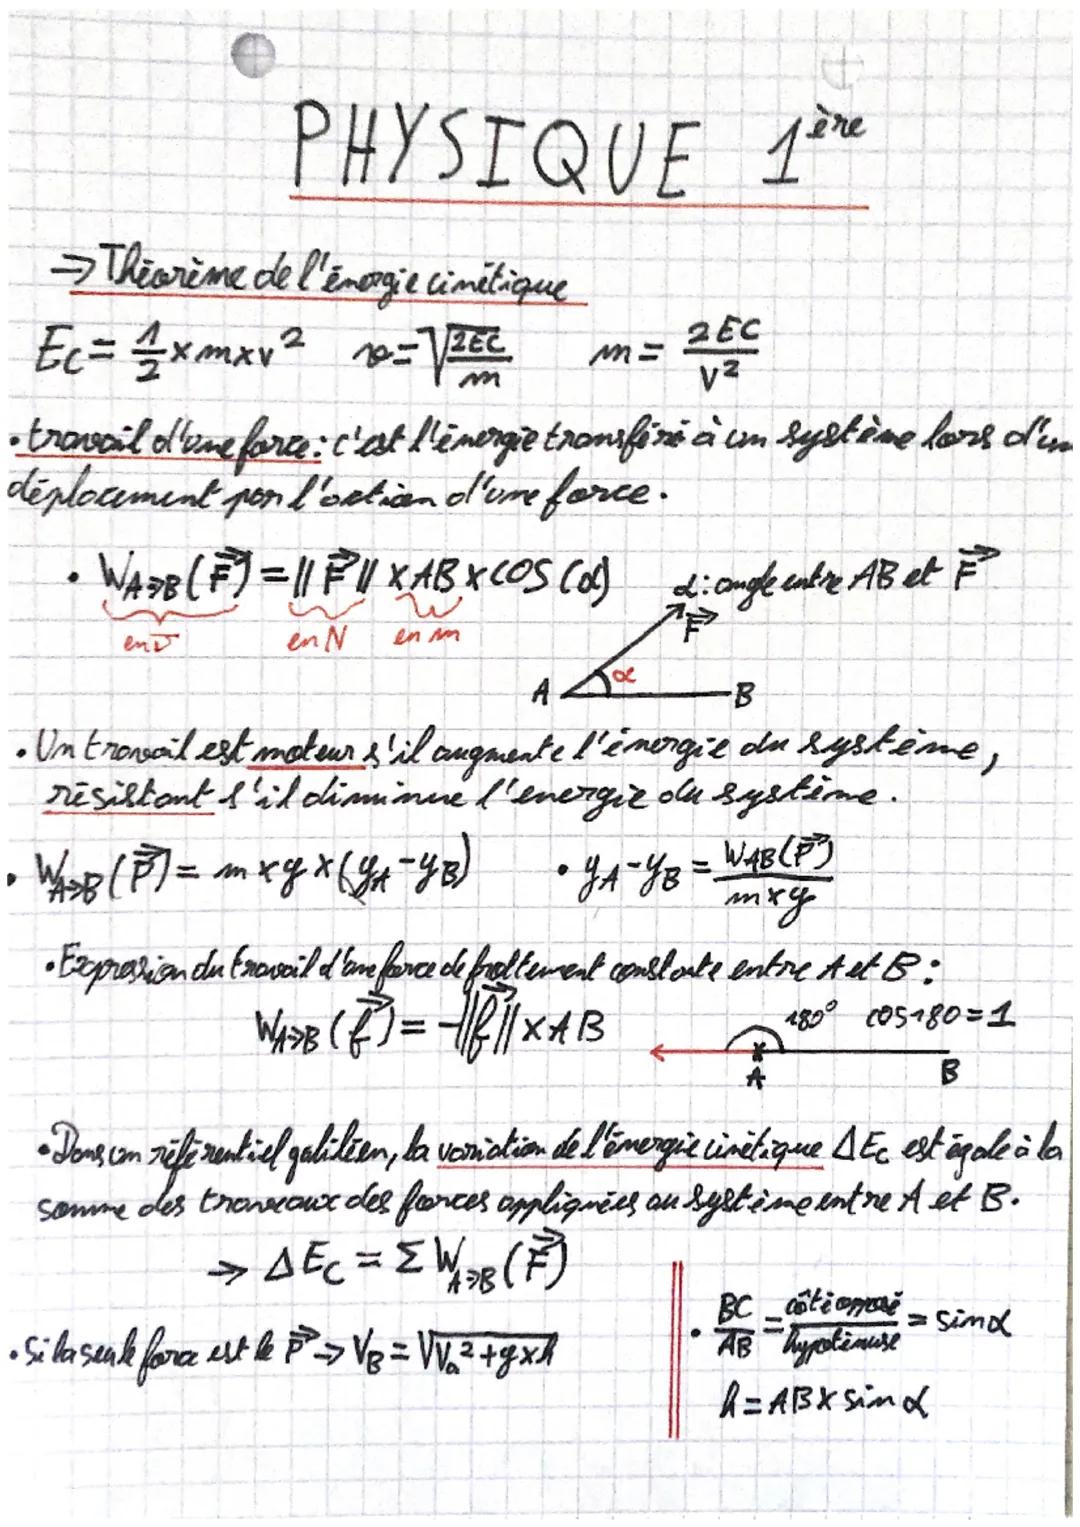 PHYSIQUE 1ère
→ Théorème de l'énergie cinétique
Ec = 1/2 x m x v² v = √(2EC/m) m = 2EC/V²
• travail d'une force : c'est l'énergie transféré à un système lors d'un
déplacement par l'action d'une force.
• W A→B (F⃗) = || F⃗ || x AB x cos (α) α : angle entre AB et F⃗
en J en N en m
F⃗
α
A B
• Un travail est moteur s'il augmente l'énergie du système,
résistant s'il diminue l'energie du système.
• W A→B (P⃗) = m x g x (yA - yB) • yA - yB = WAB(P⃗) / m x g
• Expression du travail d'une force de frottement constante entre A et B :
W A→B (f⃗) = -||f⃗|| x AB 180° cos 180 = 1
A B
• Dans un référentiel galiléen, la variation de l'énergie cinétique ΔEc est égale à la
somme des travaux des forces appliquées au système entre A et B.
→ ΔEc = Σ W A→B (F⃗)
• BC/AB = côté opposé/hypoténuse = sin α
• Si la seule force est le P⃗ → VB = √(Va² + g x h)
h = AB x sin α